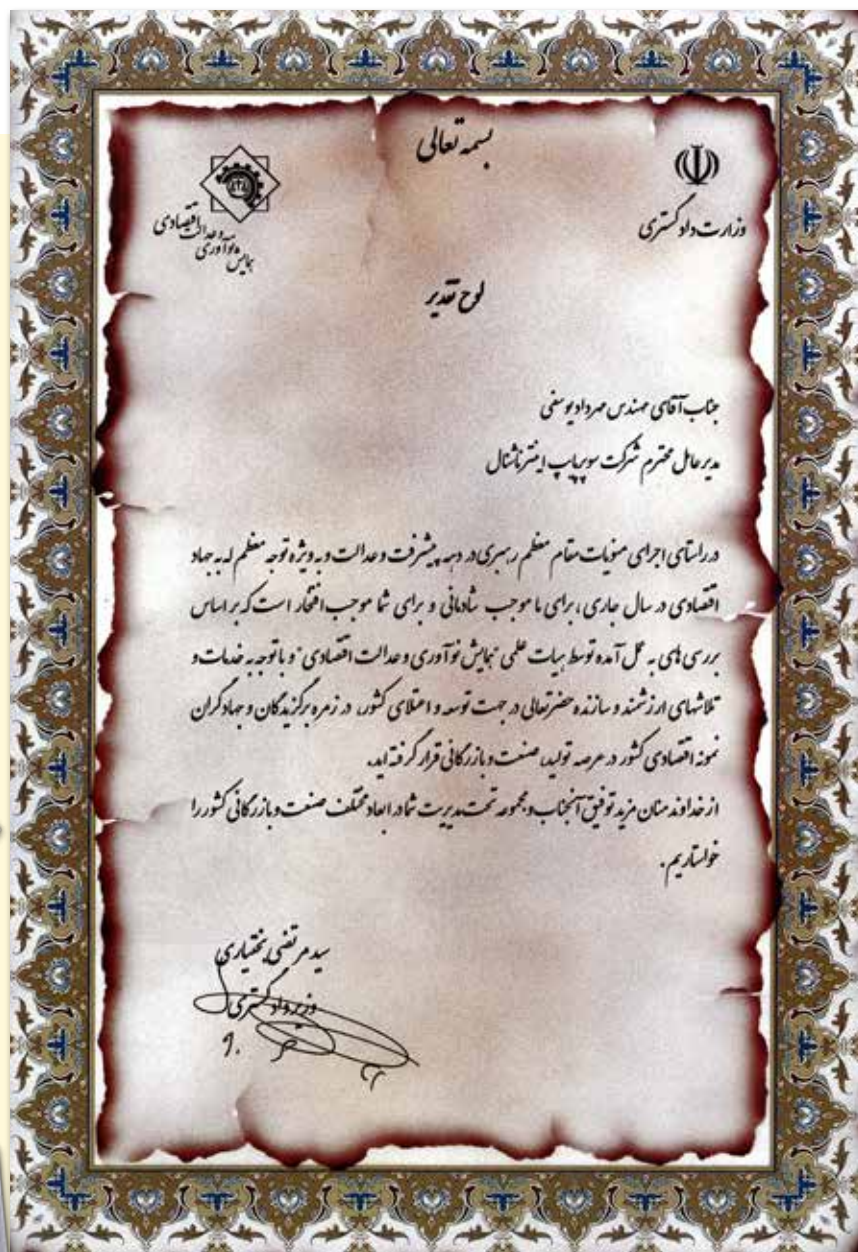 بسمه تعالی
وزارت دادگستری
همایش نوآوری
و عدالت اقتصادی
لوح تقدیر
جناب آقای مهندس مهرداد یوسفی
مدیرعامل محترم شرکت سوپرپایپ اینترناشنال
در راستای اجرای منویات مقام معظم رهبری در دهه پیشرفت و عدالت و به ویژه توجه معظم له به جهاد
اقتصادی در سال جاری، برای ما موجب شادمانی و برای شما موجب افتخار است که بر اساس
بررسی های به عمل آمده توسط هیات علمی "همایش نوآوری و عدالت اقتصادی" و با توجه به خدمات و
تلاشهای ارزشمند و سازنده حضرتعالی در جهت توسعه و اعتلای کشور، در زمره برگزیدگان و جهادگران
نمونه اقتصادی کشور در عرصه تولید، صنعت و بازرگانی قرار گرفته اید.
از خداوند منان مزید توفیق آنجناب و مجموعه تحت مدیریت شما در ابعاد مختلف صنعت و بازرگانی کشور را
خواستاریم.
سید مرتضی بختیاری
وزیر دادگستری